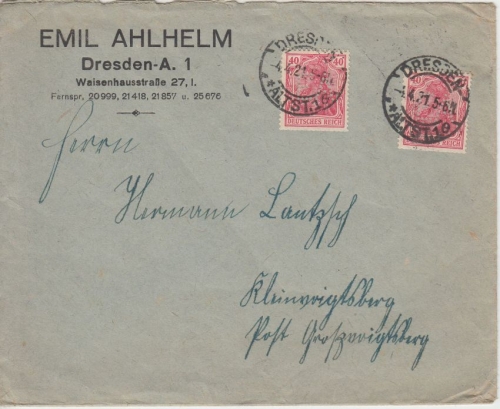 EMIL AHLHELM
Dresden-A. 1
Waisenhausstraße 27, I.
Fernspr. 20 999, 21 418, 21 857 u. 25 676
DRESDEN
4.4.21. 5-6N
* ALTST. 16
40 40
DEUTSCHES REICH
DRESDEN
4.4.21. 5-6N
* ALTST. 16
40
REICH
Herrn
Hermann Lantzsch
Kleinvoigtsberg
Post Großvoigtsberg